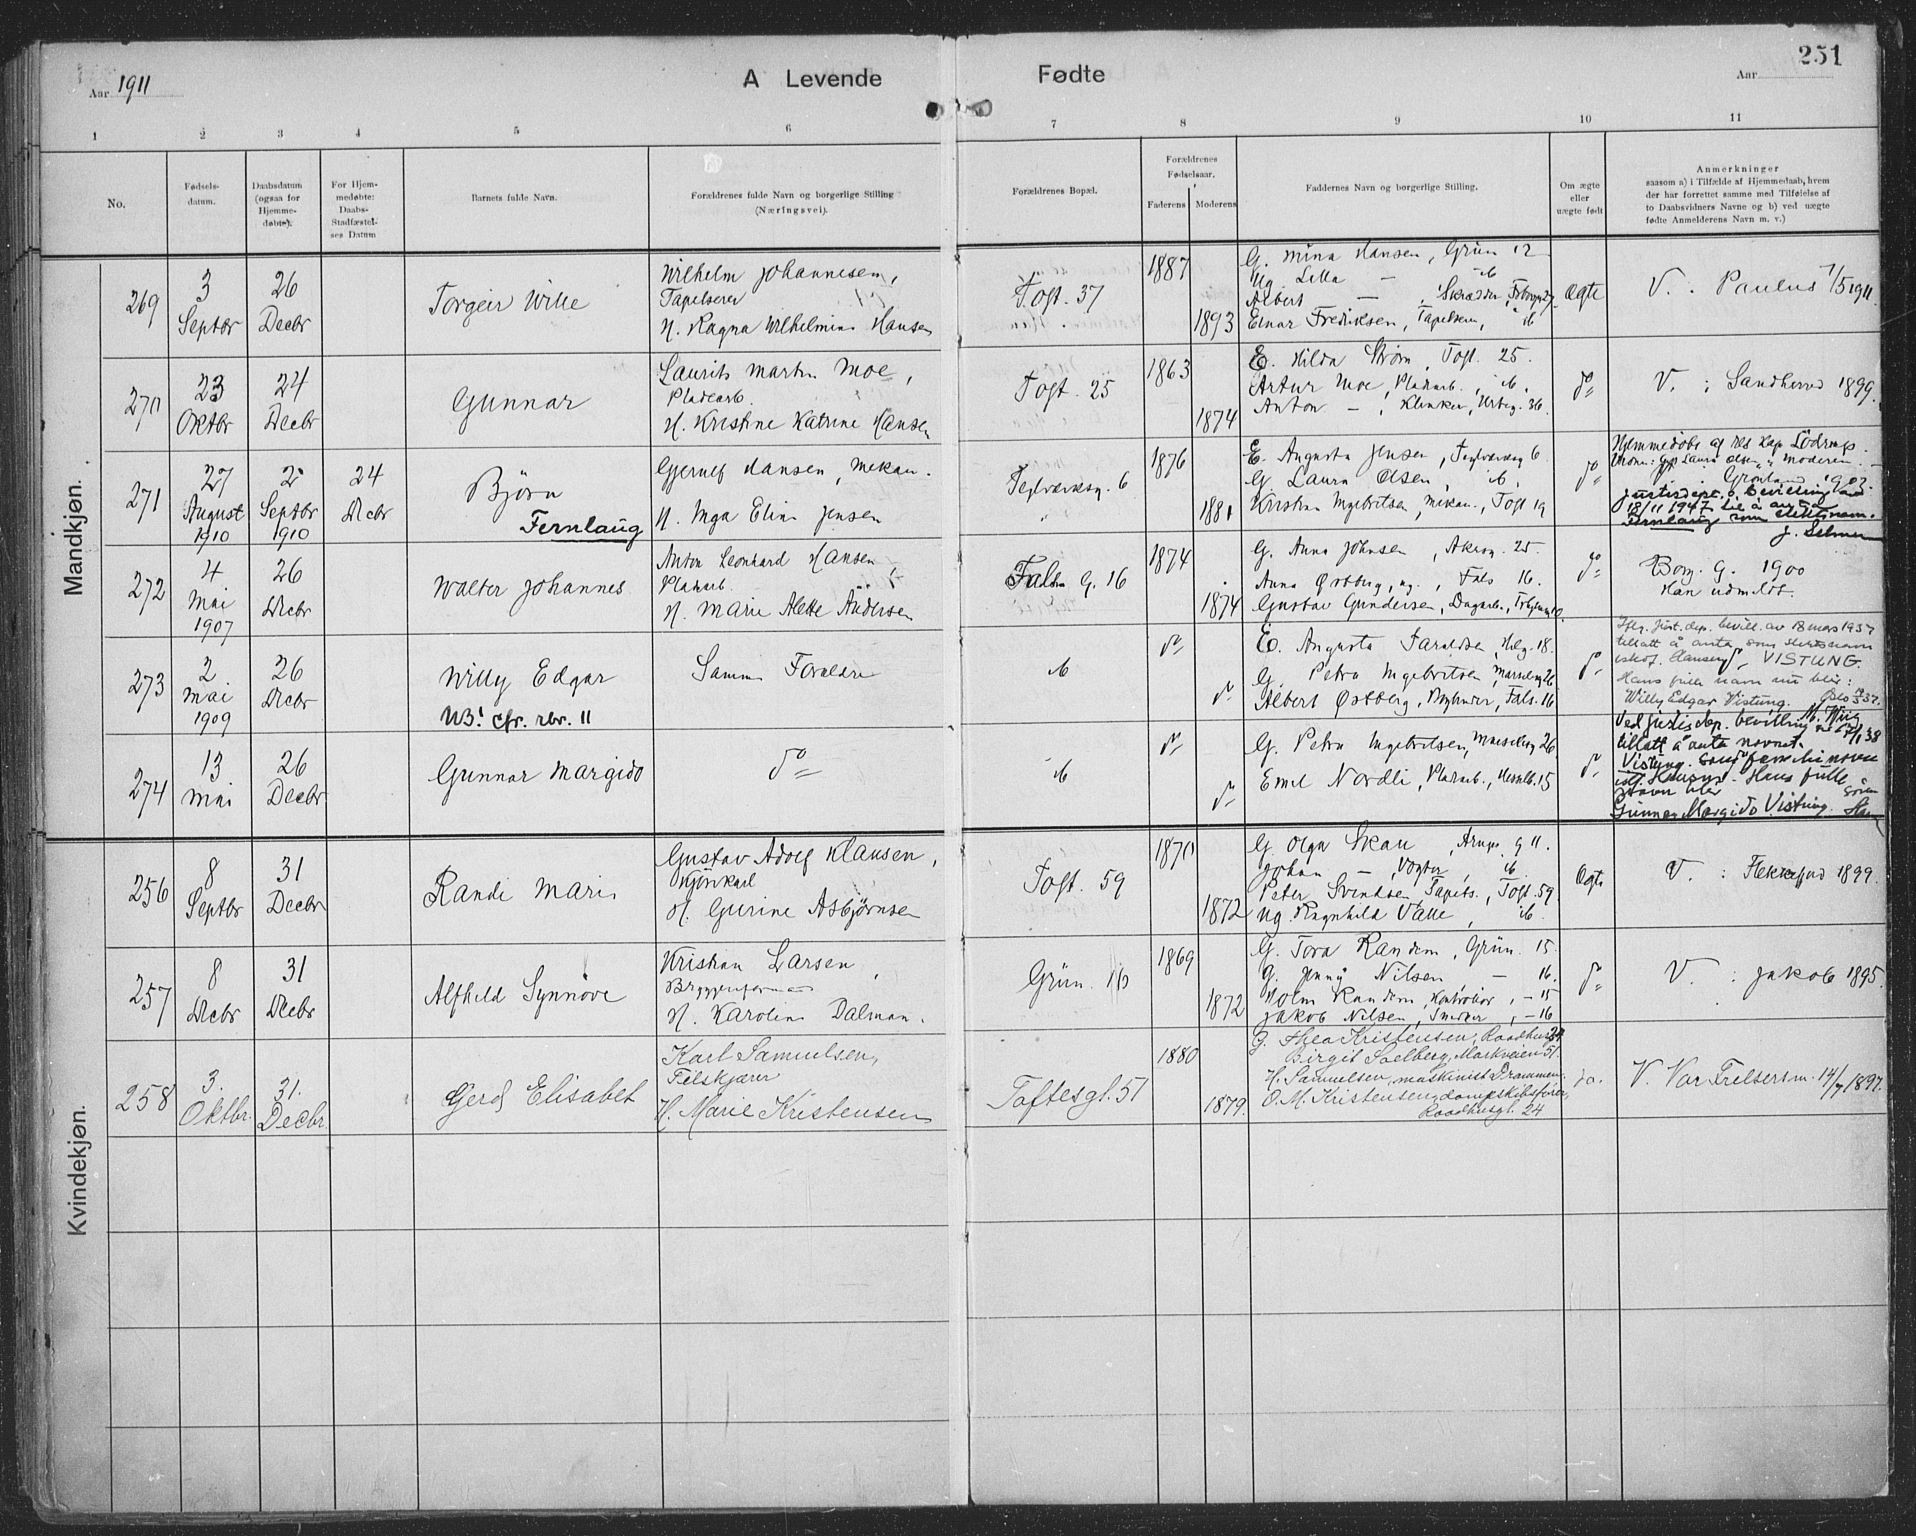 Aar 1911
A Levende
Fødte
Aar
251
1 2 3 4 5 6 7 8 9 10 11
No.
Fødsels-
datum.
Daabsdatum
(ogsaa for
Hjemme-
døbte).
For Hjem-
medøbte:
Daabs-
Stadfæstel-
ses Datum
Barnets fulde Navn.
Forældrenes fulde Navn og borgerlige Stilling
(Næringsvei).
Forældrenes Bopæl.
Forældrenes
Fødselsaar.
Faderens
Moderens
Faddernes Navn og borgerlige Stilling.
Om ægte
eller
uægte født
Anmerkninger
saasom a) i Tilfælde af Hjemmedaab, hvem
der har forrettet samme med Tilføielse af
to Daabsvidners Navne og b) ved uægte
fødte Anmelderens Navn m. v.)
Mandkjøn.
269
3
Septbr
26
Decbr
Torgeir Wille
Wilhelm Johannesen,
Tapetserer
H. Ragna Wilhelmine Hansen
Toft. 37
1887
1893
G. Mina Hansen, Grün 12
Ug Lilla — ib
Albert — , Skrædder,
Einar Fredriksen, Tapetserer, ib
Ægte
V. Paulus 7/5 1911.
270
23
Oktbr
24
Decbr
Gunnar
Laurits Martin Moe,
Pladearb.
H. Kristine Katrine Hansen
Toft. 25
1863
1874
E. Hilda Strøm, Toft. 25.
Artur Moe, Pladearb., ib.
Anton — , Klinker, Urteg. 36.
do
V. : Sandherred 1899.
271
27
August
1910
2
Septbr
1910
24
Decbr
Bjørn
Fernlaug
Gjernef Hansen, Mekan.
H. Inga Eline Jensen
Teglverksg. 6
"
1876
1881
E. Augusta Jensen, Teglverksg 6.
G. Laura Olsen, ib.
Kristian Ingebritsen, Mekan., Toft 19
do
Hjemmedøbt af res kap. Lödrup.
Vidne: Gf. Laura Olsen, Moderen
Grønland 1903.
Justisdept.s bevilling av
18/11 1947 til å anta
Fernlaug som slektsnavn.
J. Selmer
272
4
Mai
1907
26
Decbr
Walter Johannes
Anton Leonhard Hansen
Pladearb.
H. Marie Alette Andersen
Fals G. 16
1874
1874
G. Anna Johnsen, Akersg. 25.
Anna Østberg, ug., Fals 16.
Gustav Gundersen, Dagarb.,
do
Borg. G. 1900
Han udmeldt.
273
2
Mai
1909
26
Decbr
Willy Edgar
NB! cfr. rbr. 11
Samme Forældre
ib
do
do
E. Augusta Haraldsen, Helg. 18.
G. Petra Ingebritsen, Marselisg 26
Albert Østberg, Bogbinder, Fals. 16
do
Iflg. Just.dep. bevill. av 18 mars 1937
tillatt å anta som slektsnavn
istf. Hansen, VISTUNG.
Hans fulle navn nu blir:
Willy Edgar Vistung. Oslo 37.
274
13
Mai
26
Decbr
Gunnar Margido
do
ib
do
do
G. Petra Ingebritsen, Marselisg 26,
Emil Nordli, Pladearb., Herslb. 15
do
Ved Justisdep. bevilling
tillatt å anta navnet
Vistung som familienavn
istf. Hansen. Hans fulle
navn blir
Gunnar Margido Vistung.
Kvindekjøn.
256
8
Septbr
31
Decbr
Randi Marie
Gustav Adolf Klausen,
Kjørekarl
H. Gurine Asbjørnsen
Toft. 59
1870
1872
G Olga Skau, g 11.
Johan — , Vogter, ib.
Peter Svendsen, Tapets., Toft. 59
Ug. Ragnhild Valle, ib.
Ægte
V. : Flekkefjord 1899.
257
8
Decbr
31
Decbr
Alfhild Synnøve
Kristian Larsen,
Bryggeriformand
H. Karoline Dalman.
Grün. 16
1869
1872
G. Tora Randem, Grün. 15.
G. Jenny Nilsen — 16.
Holm Randem, Kontrollør, — 15
Jakob Nilsen, Snedker, — 16
do
V. : Jakob 1895.
258
3.
Oktbr.
31.
Decbr.
Gerd Elisabet
Karl Samuelsen,
Tilskjærer
H. Marie Kristensen
Toftesgt. 51
1880
1879.
G. Thea Kristensen, Raadhusg 24
Birgit Solberg, Markveien 51.
H. Samuelsen, maskinist Drammen.
O. M. Kristensen, dampskibsfører,
Raadhusgt. 24
do.
V. Vor Frelsers m. 14/7 1897.